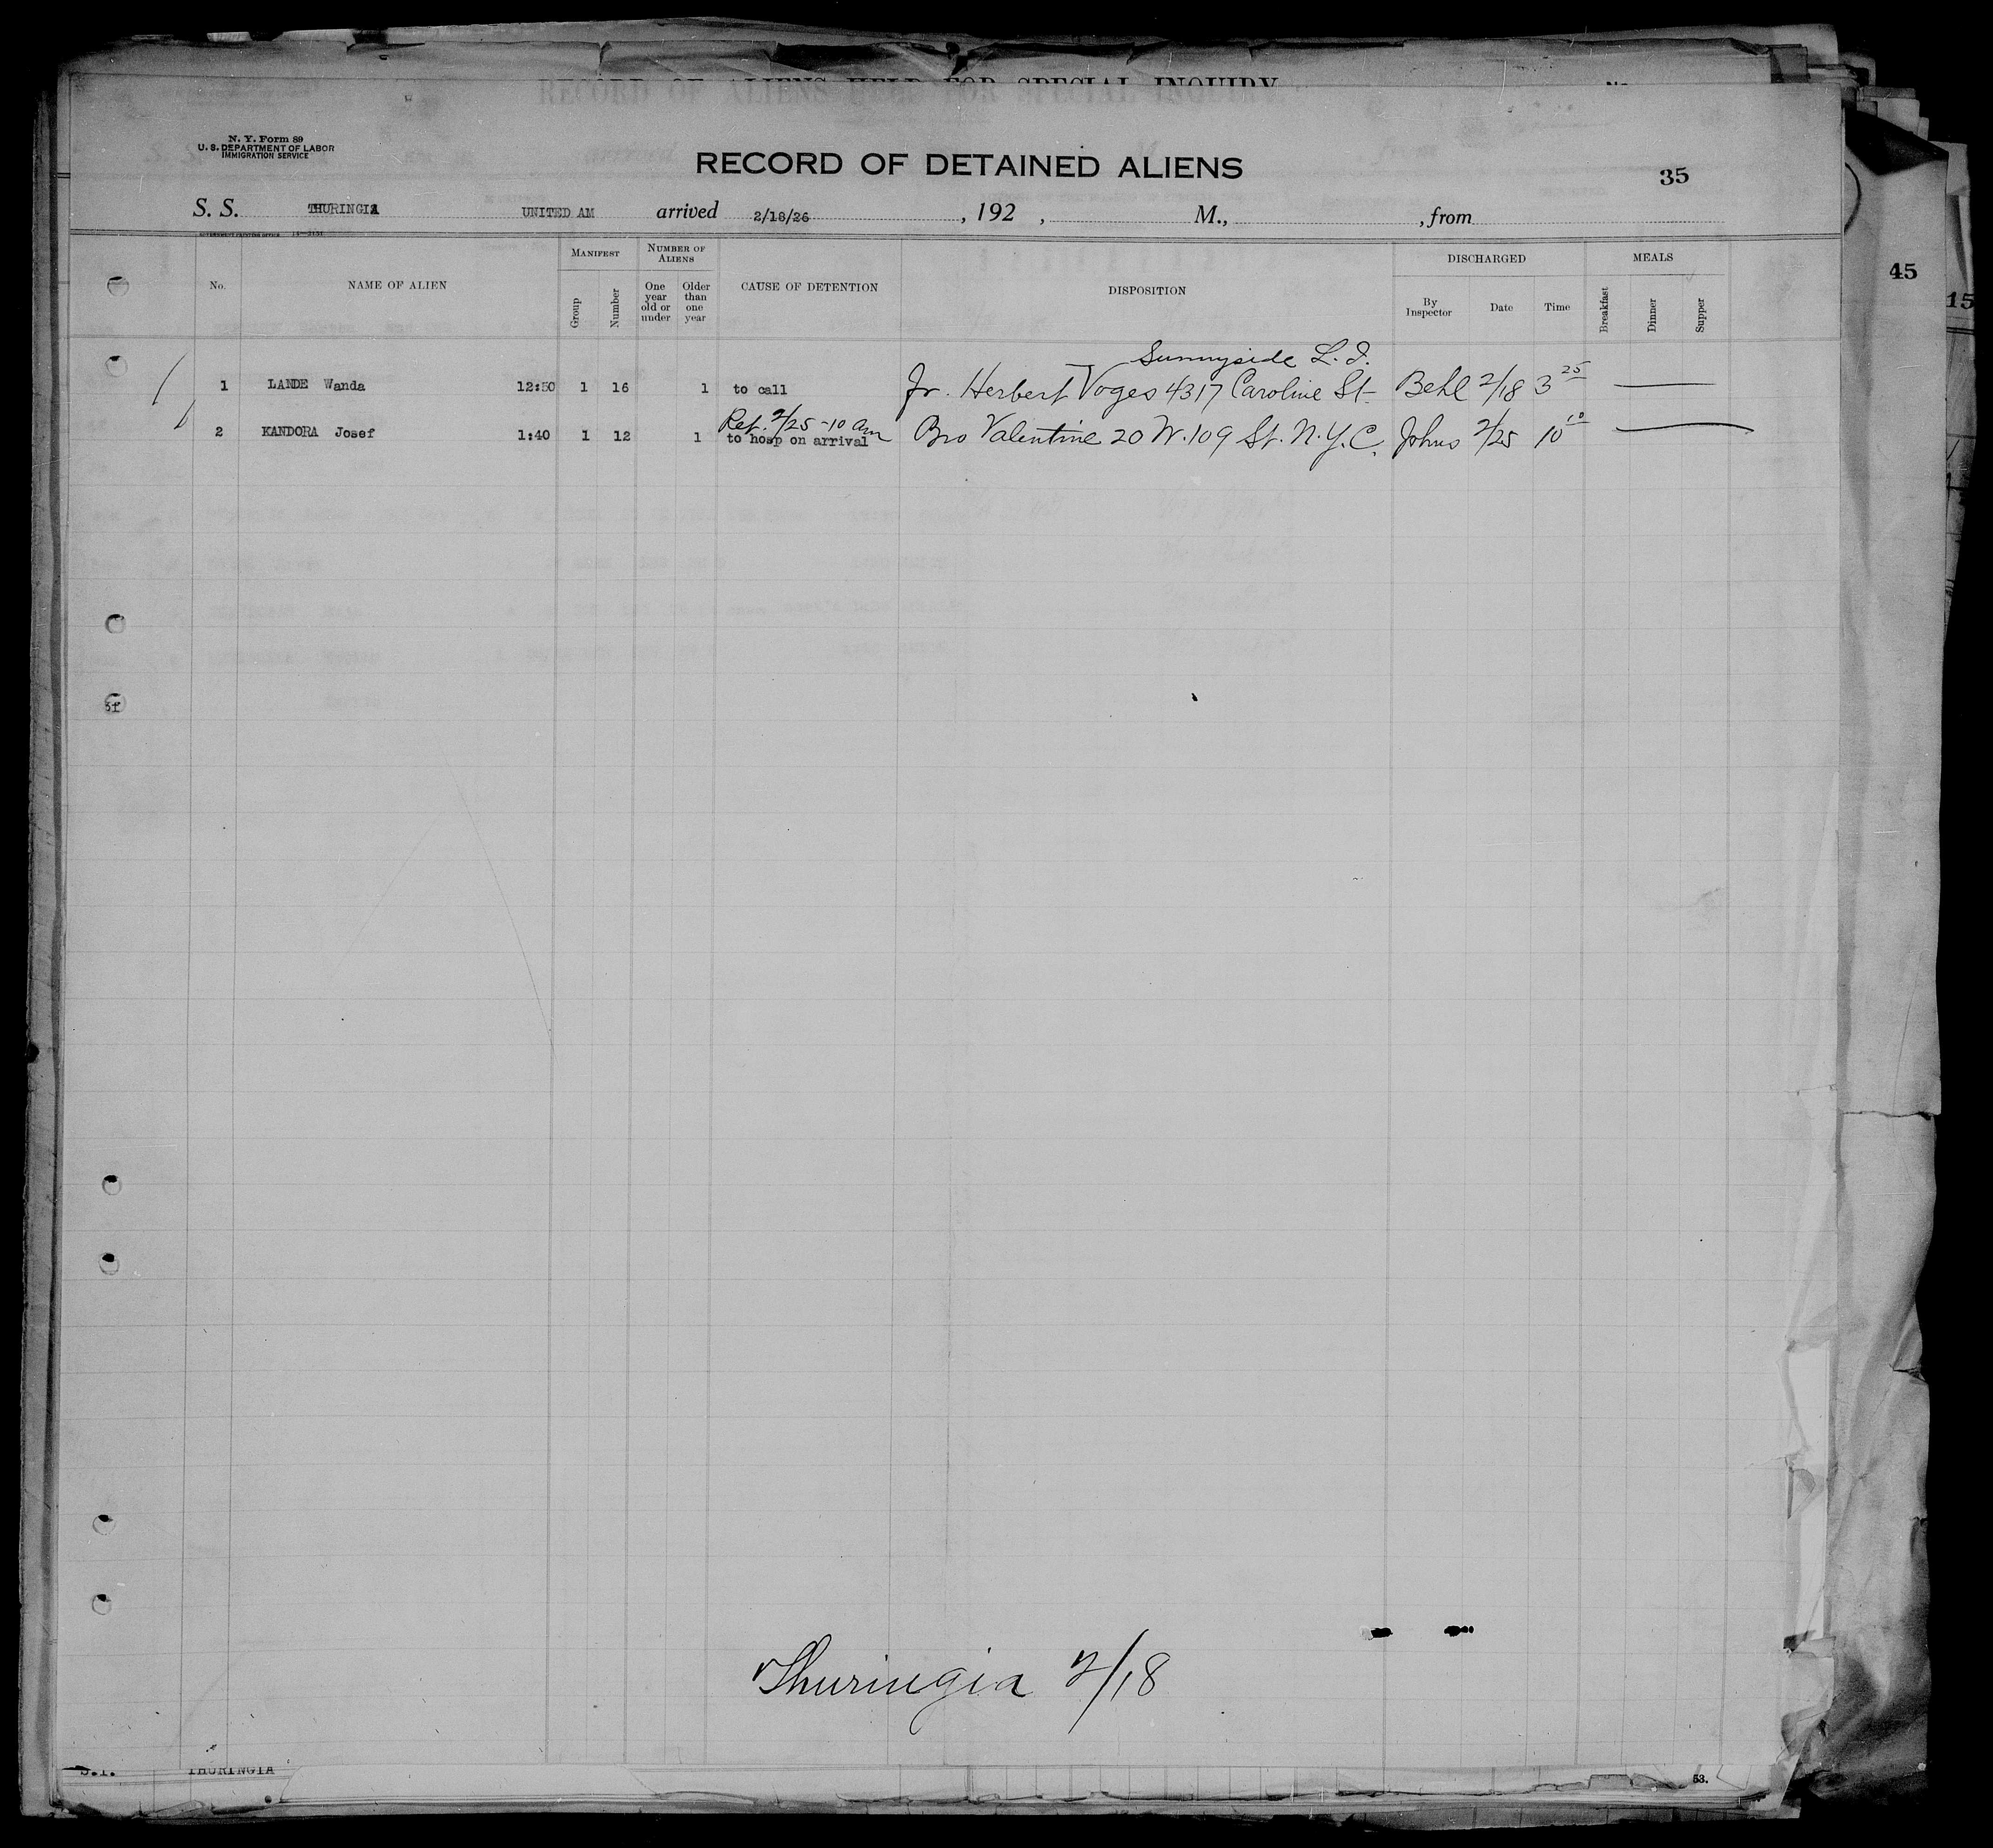 RECORD OF ALIENS HELD FOR SPECIAL INQUIRY
N. Y. Form 89
U. S. DEPARTMENT OF LABOR
IMMIGRATION SERVICE
RECORD OF DETAINED ALIENS
35
S. S. THURINGIA UNITED AM arrived 2/18/26 , 192 , M., , from
45
15
No. NAME OF ALIEN MANIFEST Group Number NUMBER OF ALIENS One year old or under Older than one year CAUSE OF DETENTION DISPOSITION DISCHARGED By Inspector Date Time MEALS Breakfast Dinner Supper
Sunnyside L. I.
1 LANDE Wanda 12:50 1 16 1 to call Fr. Herbert Voges 4317 Caroline St Behl 2/18 3 25
Ret. 2/25 - 10 am
2 KANDORA Josef 1:40 1 12 1 to hosp on arrival Bro Valentine 20 W. 109 St. N.Y.C. Johns 2/25 10 10
Thuringia 2/18
S.I. THURINGIA
53.